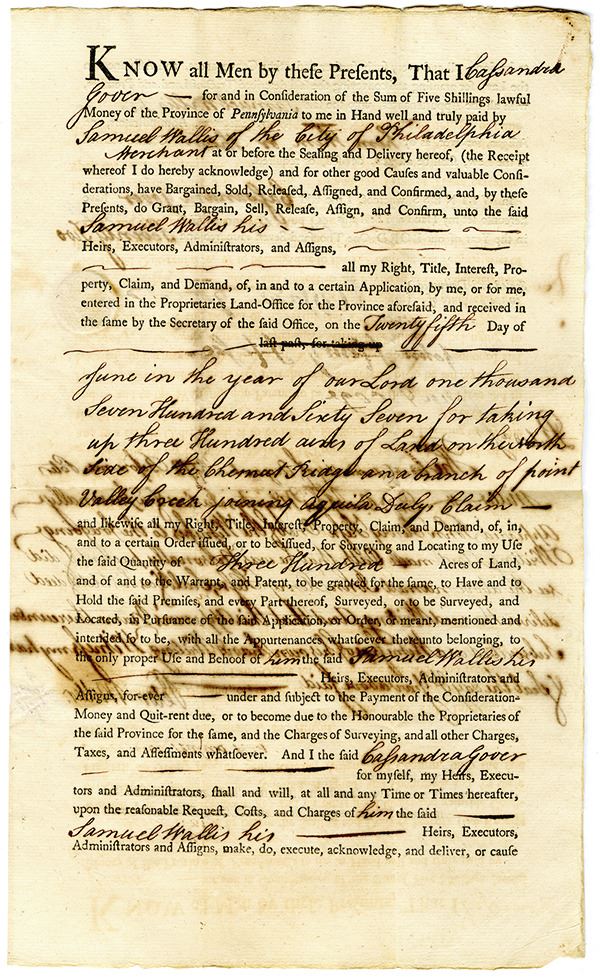 KNOW all Men by theſe Preſents, That I Caſsandra
Gover — for and in Conſideration of the Sum of Five Shillings lawful
Money of the Province of Pennſylvania to me in Hand well and truly paid by
Samuel Wallis of the City of Philadelphia
Merchant at or before the Sealing and Delivery hereof, (the Receipt
whereof I do hereby acknowledge) and for other good Cauſes and valuable Conſi-
derations, have Bargained, Sold, Releaſed, Aſſigned, and Confirmed, and, by theſe
Preſents, do Grant, Bargain, Sell, Releaſe, Aſſign, and Confirm, unto the ſaid
Samuel Wallis his
Heirs, Executors, Adminiſtrators, and Aſſigns,
all my Right, Title, Intereſt, Pro-
perty, Claim, and Demand, of, in and to a certain Application, by me, or for me,
entered in the Proprietaries Land-Office for the Province aforeſaid, and received in
the ſame by the Secretary of the ſaid Office, on the Twenty fifth Day of
laſt paſt, for taking up
June in the year of our Lord one thousand
Seven Hundred and Sixty Seven for taking
up three Hundred acres of Land on the North
Side of the Chesnut Ridge on a branch of point
Valley Creek joining aquila Dulys Claim —
and likewiſe all my Right, Title, Intereſt, Property, Claim, and Demand, of, in,
and to a certain Order iſſued, or to be iſſued, for Surveying and Locating to my Uſe
the ſaid Quantity of three Hundred Acres of Land,
and of and to the Warrant, and Patent, to be granted for the ſame, to Have and to
Hold the ſaid Premiſes, and every Part thereof, Surveyed, or to be Surveyed, and
Located, in Purſuance of the ſaid Application, or Order, or meant, mentioned and
intended ſo to be, with all the Appurtenances whatſoever thereunto belonging, to
the only proper Uſe and Behoof of him the ſaid Samuel Wallis his
Heirs, Executors, Adminiſtrators and
Aſſigns, for-ever — under and ſubject to the Payment of the Conſideration-
Money and Quit-rent due, or to become due to the Honourable the Proprietaries of
the ſaid Province for the ſame, and the Charges of Surveying, and all other Charges,
Taxes, and Aſſeſſments whatſoever. And I the ſaid Caſsandra Gover
for myſelf, my Heirs, Execu-
tors and Adminiſtrators, ſhall and will, at all and any Time or Times hereafter,
upon the reaſonable Requeſt, Coſts, and Charges of him the ſaid
Samuel Wallis his — Heirs, Executors,
Adminiſtrators and Aſſigns, make, do, execute, acknowledge, and deliver, or cauſe